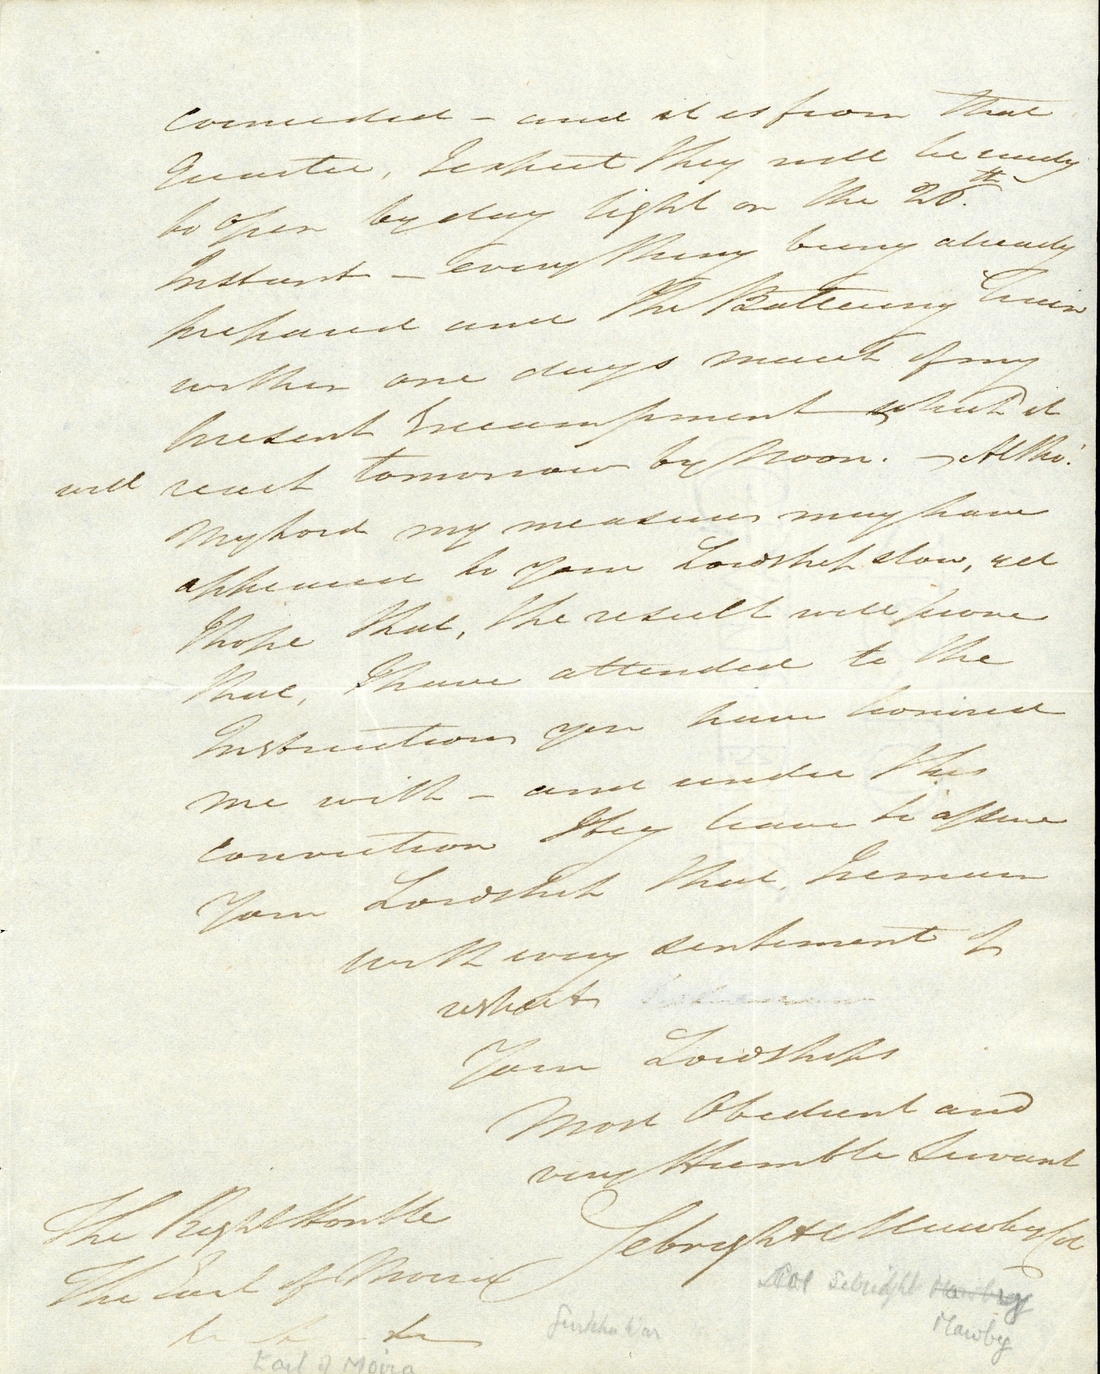 connected - and it is from that
Quarter, I expect they will be ready
to open by day light on the 20th
Instant - every thing being already
prepared and the Battering Train
within one days march of my
present Encampment which it
will reach tomorrow by Noon. - Altho'
My Lord my measures may have
appeared to your Lordship slow, yet
I hope that, the result will prove
that, I have attended to the
Instructions you have honored
me with - and under this
conviction I beg leave to assure
Your Lordship that, I remain
with every sentiment of
respect
Your Lordships
Most Obedient and
very Humble Servant
Sebright Mawby Col
The Right Honble
The Earl of Moira
&c &c - &c
Col Sebright Mawby
Mawby
Gurkha War
Earl of Moira